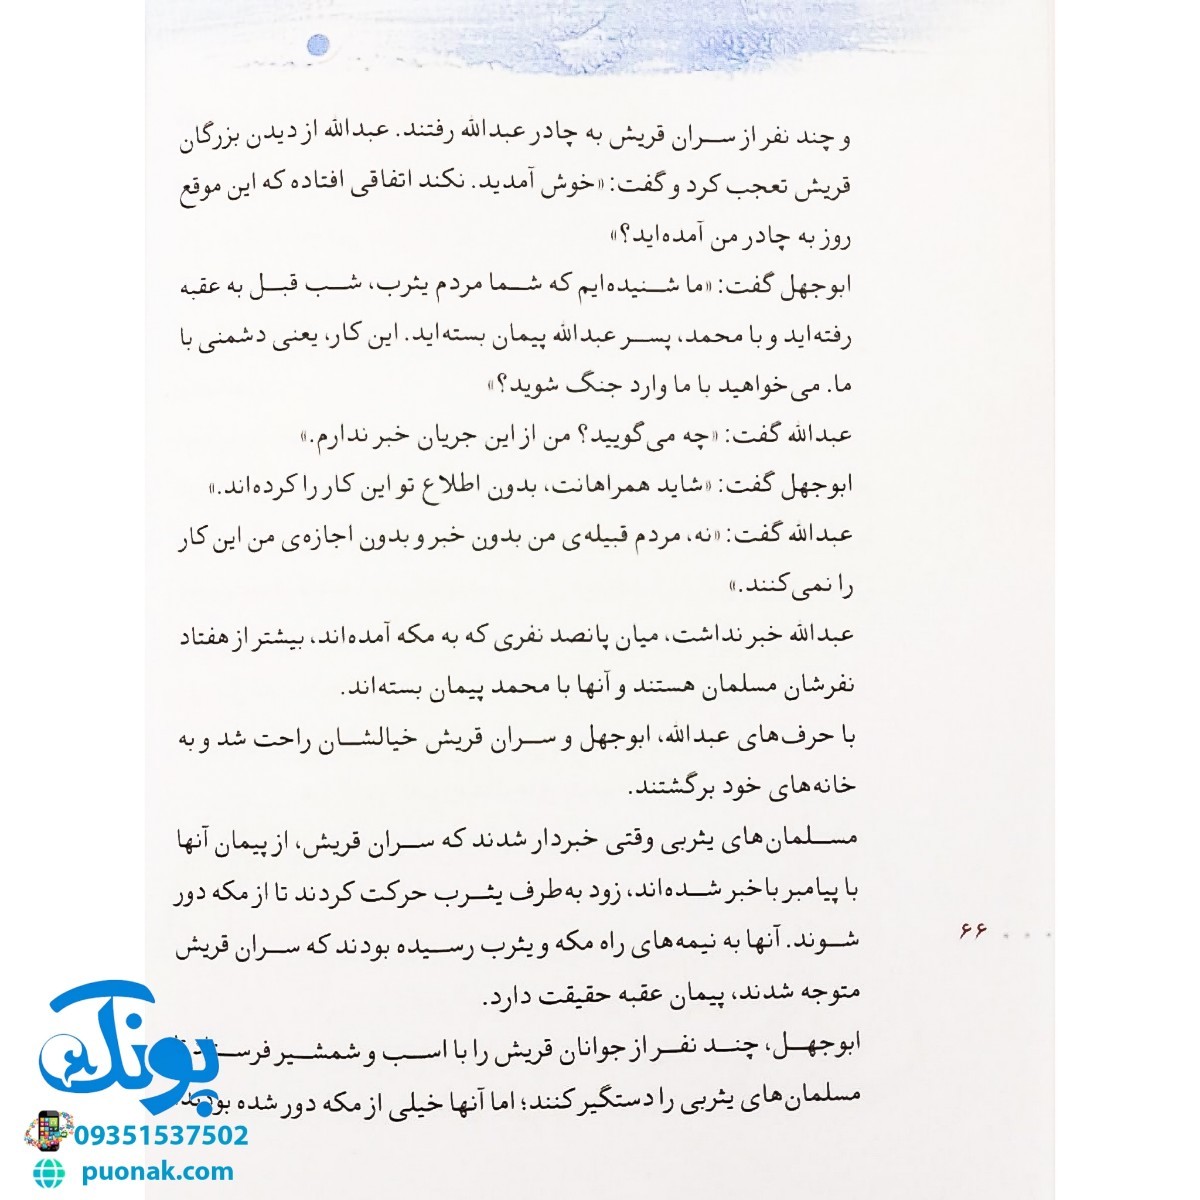 و چند نفر از سران قریش به چادر عبدالله رفتند. عبدالله از دیدن بزرگان
قریش تعجب کرد و گفت: «خوش آمدید. نکند اتفاقی افتاده که این موقع
روز به چادر من آمده‌اید؟»
ابوجهل گفت: «ما شنیده‌ایم که شما مردم یثرب، شب قبل به عقبه
رفته‌اید و با محمد، پسر عبدالله پیمان بسته‌اید. این کار، یعنی دشمنی با
ما. می‌خواهید با ما وارد جنگ شوید؟»
عبدالله گفت: «چه می‌گویید؟ من از این جریان خبر ندارم.»
ابوجهل گفت: «شاید همراهانت، بدون اطلاع تو این کار را کرده‌اند.»
عبدالله گفت: «نه، مردم قبیله‌ی من بدون خبر و بدون اجازه‌ی من این کار
را نمی‌کنند.»
عبدالله خبر نداشت، میان پانصد نفری که به مکه آمده‌اند، بیشتر از هفتاد
نفرشان مسلمان هستند و آنها با محمد پیمان بسته‌اند.
با حرف‌های عبدالله، ابوجهل و سران قریش خیالشان راحت شد و به
خانه‌های خود برگشتند.
مسلمان‌های یثربی وقتی خبردار شدند که سران قریش، از پیمان آنها
با پیامبر باخبر شده‌اند، زود به‌طرف یثرب حرکت کردند تا از مکه دور
شوند. آنها به نیمه‌های راه مکه و یثرب رسیده بودند که سران قریش
متوجه شدند، پیمان عقبه حقیقت دارد.
ابوجهل، چند نفر از جوانان قریش را با اسب و شمشیر
مسلمان‌های یثربی را دستگیر کنند؛ اما آنها خیلی از مکه دور شده بودند.
۶۶
پونک
09351537502
puonak.com